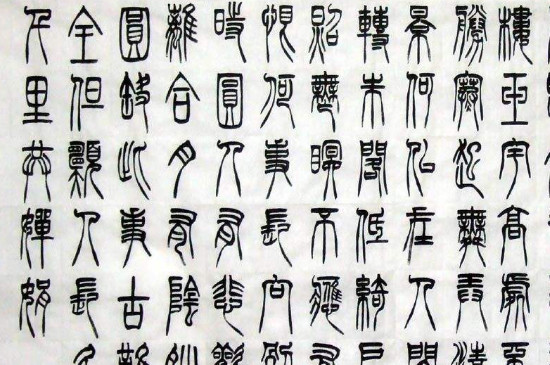 樓玉宇高處不
勝寒起舞弄清
景何似在人間
轉朱閣低綺戶
照無眠不應有
恨何事長向別
時圓人有悲歡
離合月有陰
圓缺此事古難
全但願人長久
千里共嬋娟